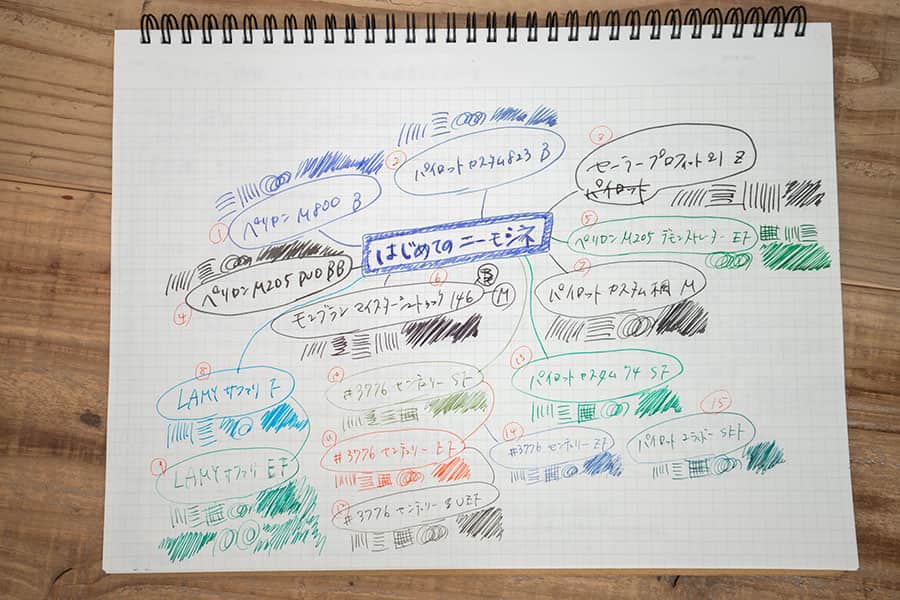 ② パイロットカスタム823 B
③ セーラー プロフィット21 Z
パイロット
① ペリカン M800 B
⑤ ペリカン M205 デモンストレーター EF
はじめてのニーモシネ
④ ペリカン M205 DUO BB
⑥ モンブラン マイスターシュトュック 146 M
⑦ パイロット カスタム 楓 M
⑧ LAMY サファリ F
#3776 センチュリー SF
⑬ パイロットカスタム 74 SF
⑨ LAMY サファリ EF
⑪ #3776 センチュリー EF
⑭ #3776 センチュリー EF
⑮ パイロット エラボー SEF
⑫ #3776 センチュリー UEF